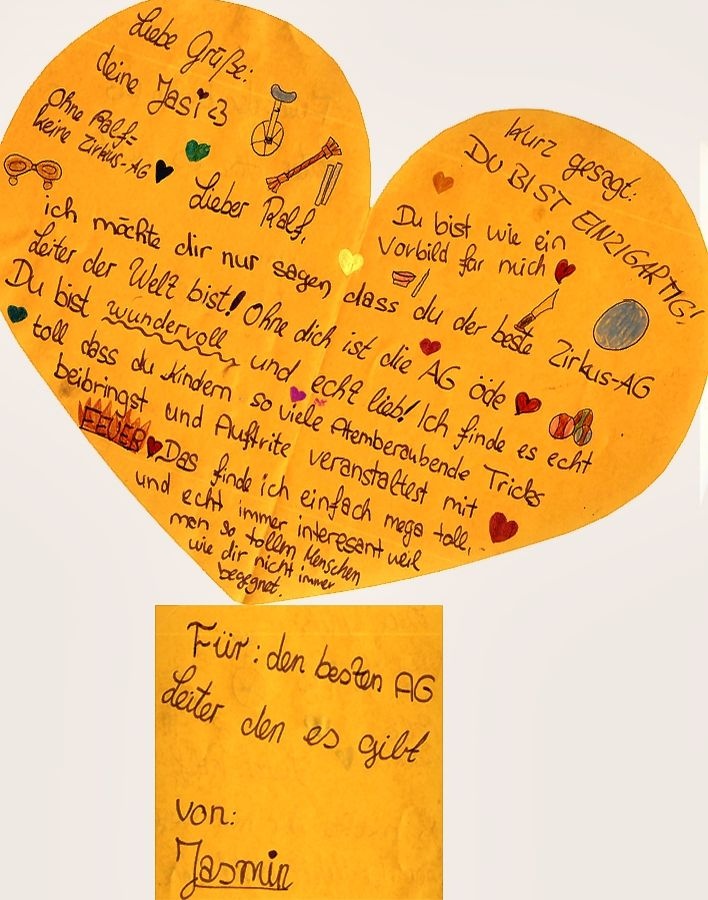 Liebe Grüße:
deine Jasi <3
Ohne Ralf=
keine Zirkus-AG
Lieber Ralf,
ich möchte dir nur sagen, dass du der beste Zirkus-AG
Leiter der Welt bist! Ohne dich ist die AG öde
Du bist wundervoll und echt lieb! Ich finde es echt
toll dass du Kindern so viele Atemberaubende Tricks
beibringst und Auftritte veranstaltest mit
FEUER Das finde ich einfach mega toll,
und echt immer interesant weil
man so tollem Menschen
wie dir nicht immer
begegnet.
Kurz gesagt:
DU BIST EINZIGARTIG!
Du bist wie ein
Vorbild für mich
Für: den besten AG
Leiter den es gibt
von:
Jasmin